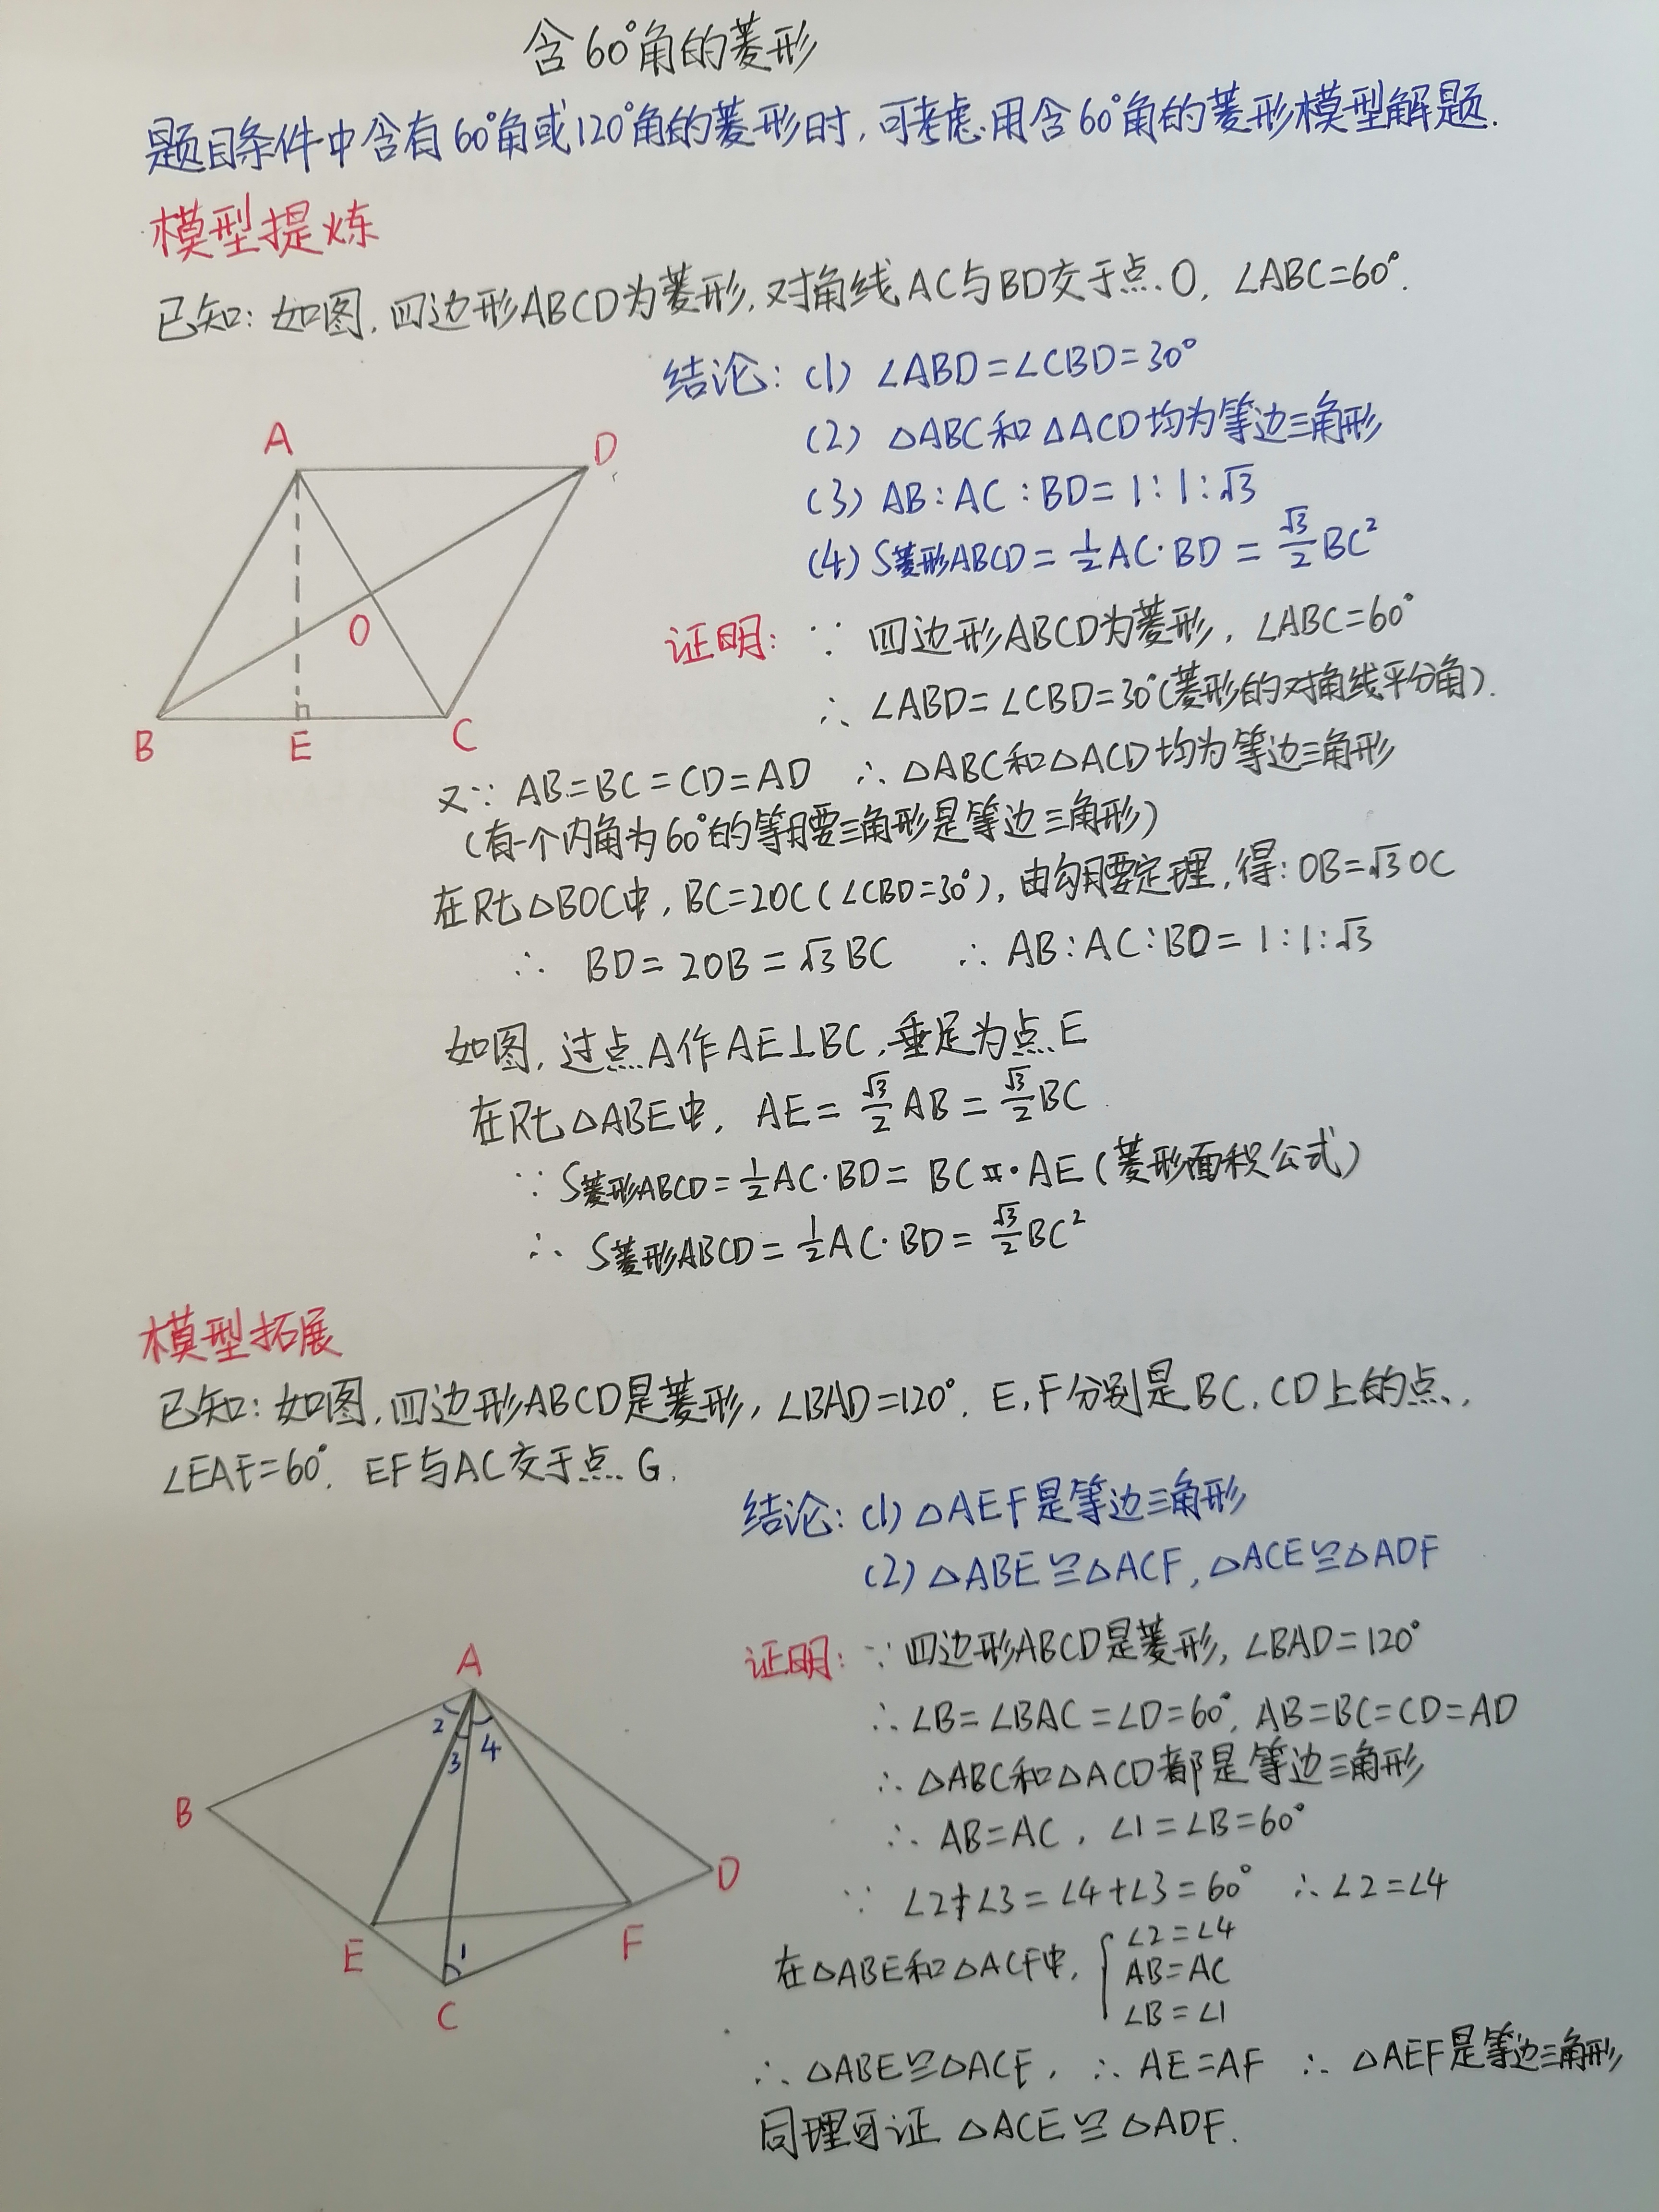 含60°角的菱形
题目条件中含有60°角或120°角的菱形时,可考虑用含60°角的菱形模型解题.
模型提炼
已知:如图,四边形ABCD为菱形,对角线AC与BD交于点O,∠ABC=60°.
结论:(1)∠ABD=∠CBD=30°
(2)△ABC和△ACD均为等边三角形
(3)AB:AC:BD=1:1:√3
(4)S菱形ABCD=1/2AC·BD=√3/2BC²
A
D
O
B
E
C
证明:∵四边形ABCD为菱形,∠ABC=60°
∴∠ABD=∠CBD=30°(菱形的对角线平分角).
又∵AB=BC=CD=AD ∴△ABC和△ACD均为等边三角形
(有一个内角为60°的等腰三角形是等边三角形)
在Rt△BOC中,BC=2OC(∠CBD=30°),由勾腰定理,得:OB=√3OC
∴ BD=2OB=√3BC ∴AB:AC:BD=1:1:√3
如图,过点A作AE⊥BC,垂足为点E
在Rt△ABE中,AE=√3/2AB=√3/2BC
∵S菱形ABCD=1/2AC·BD=BC·AE(菱形面积公式)
∴S菱形ABCD=1/2AC·BD=√3/2BC²
模型拓展
已知:如图,四边形ABCD是菱形,∠BAD=120°,E,F分别是BC,CD上的点,
∠EAF=60°,EF与AC交于点G.
结论:(1)△AEF是等边三角形
(2)△ABE≌△ACF,△ACE≌△ADF
A
2
3
4
B
D
E
1
F
C
证明:∵四边形ABCD是菱形,∠BAD=120°
∴∠B=∠BAC=∠D=60°,AB=BC=CD=AD
∴△ABC和△ACD都是等边三角形
∴AB=AC,∠1=∠B=60°
∵∠2+∠3=∠4+∠3=60° ∴∠2=∠4
在△ABE和△ACF中,{∠2=∠4
AB=AC
∠B=∠1
∴△ABE≌△ACF,∴AE=AF ∴△AEF是等边三角形
同理可证△ACE≌△ADF.